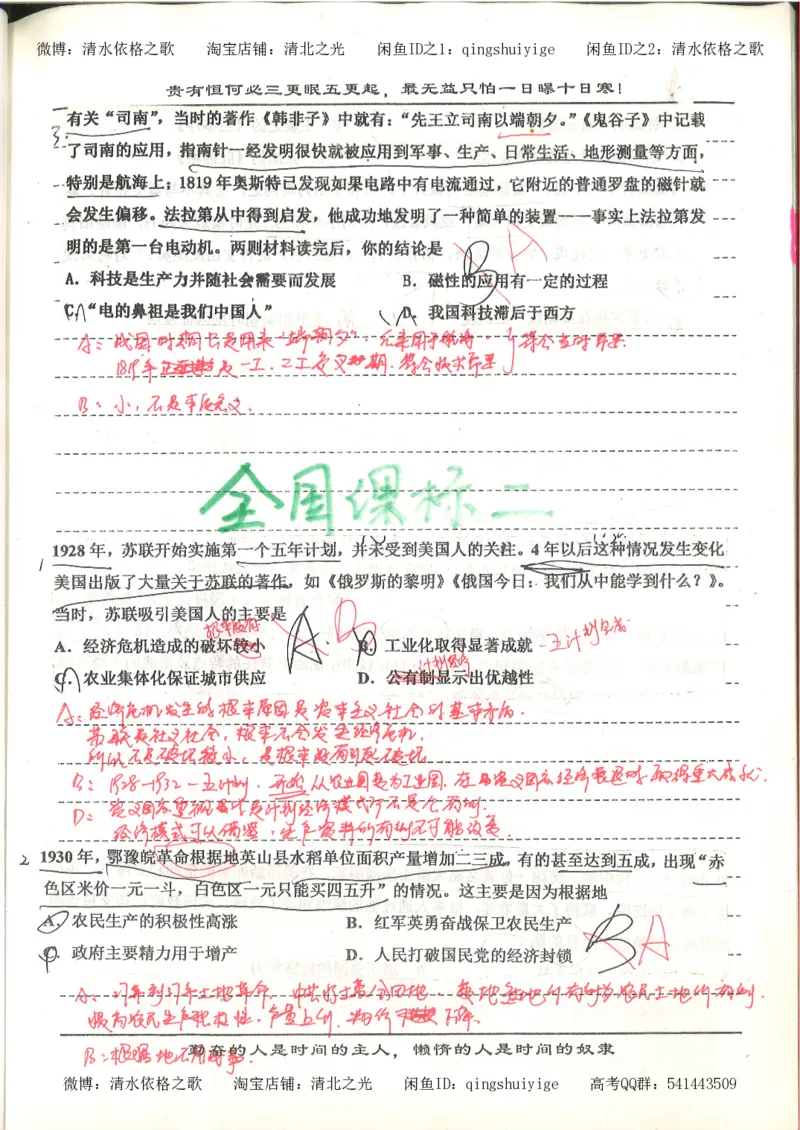 微博：清水依格之歌 淘宝店铺：清北之光 闲鱼ID之1：qingshuiyige 闲鱼ID之2：清水依格之歌
贵有恒何必三更眠五更起，最无益只怕一日曝十日寒！
3 有关“司南”，当时的著作《韩非子》中就有：“先王立司南以端朝夕。”《鬼谷子》中记载
了司南的应用，指南针一经发明很快就被应用到军事、生产、日常生活、地形测量等方面，
特别是航海上；1819年奥斯特已发现如果电路中有电流通过，它附近的普通罗盘的磁针就
会发生偏移。法拉第从中得到启发，他成功地发明了一种简单的装置——事实上法拉第发
明的是第一台电动机。两则材料读完后，你的结论是
A．科技是生产力并随社会需要而发展 B．磁性的应用有一定的过程
C．“电的鼻祖是我们中国人” D．我国科技滞后于西方
B A
A：战国时期司南是用来“端朝夕”，
1819年 是一工、二工
B：小，不是
全国课标二
1 1928年，苏联开始实施第一个五年计划，并未受到美国人的关注。4年以后这种情况发生变化
美国出版了大量关于苏联的著作，如《俄罗斯的黎明》《俄国今日：我们从中能学到什么？》。
当时，苏联吸引美国人的主要是
A B
根本没有
A．经济危机造成的破坏较小 B．工业化取得显著成就 一五计划完成
计划经济
C．农业集体化保证城市供应 D．公有制显示出优越性
A：经济危机发生的根本原因是资本主义社会的基本矛盾。
苏联是社义社会，根本不会发生经济危机，
所以不是破坏较小，是根本没有引起破坏
B：1928-1932一五计划，开始从农业国变为工业国，在 取得重大成就.
D：
经济模式可以借鉴，生产资料所有制不可能改变.
2 1930年，鄂豫皖革命根据地英山县水稻单位面积产量增加二三成，有的甚至达到五成，出现“赤
色区米价一元一斗，白色区一元只能买四五升”的情况。这主要是因为根据地
A．农民生产的积极性高涨 B．红军英勇奋战保卫农民生产
B A
C．政府主要精力用于增产 D．人民打破国民党的经济封锁
A：27年到37年土地革命，中共 土地所有制，
提高农民生产积极性，产量上升， 下降.
B：根据地
勤奋的人是时间的主人，懒惰的人是时间的奴隶
微博：清水依格之歌 淘宝店铺：清北之光 闲鱼ID：qingshuiyige 高考QQ群：541443509